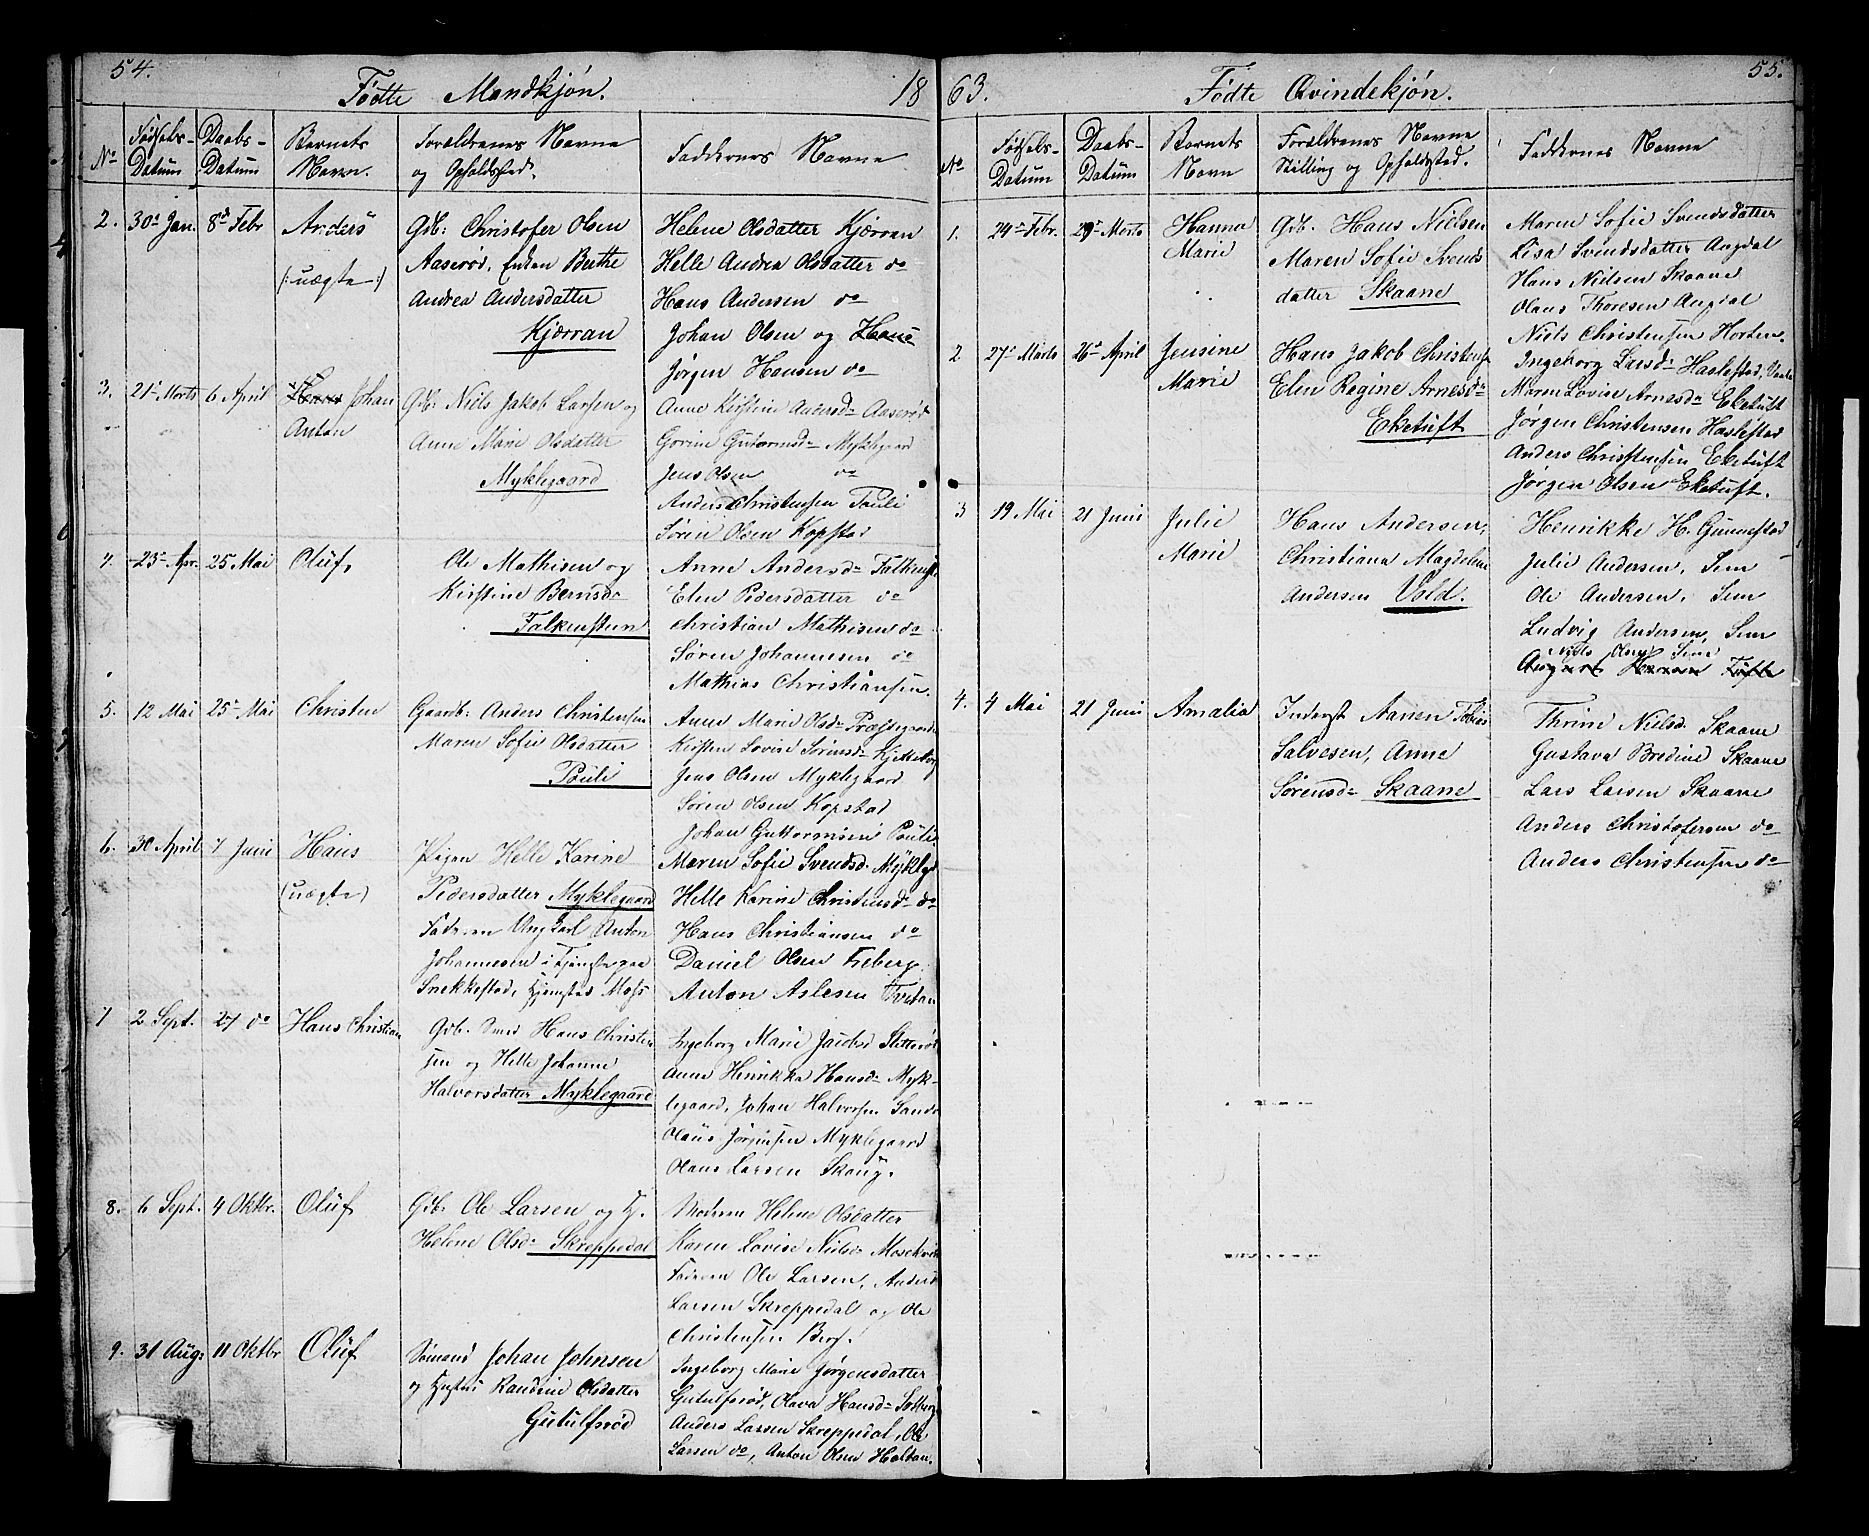 54.
Fødte Mandkjøn.
18
No
Fødsels-Datum
Daabs-Datum
Barnets Navn.
Forældrenes Navne og Opholdsted.
Faddernes Navne
2. 30 Jan. 8d Febr Anders
(:uægte:)
Gdb: Christofer Olsen
Aaserød, Enken Berthe
Andrea Andersdatter
Kjærran
Helene Olsdatter Kjærran
Helle Andrea Olsdatter do
Hans Andersen do
Johan Olsen og Hans
Jørgen Hansen do
3. 21 Marts 6 April Johan
Anton
Gdb: Niels Jakob Larsen og
Anne Marie Olsdatter
Myklegaard
Anne Kirstine Andersd. Aaserød
Gorine Guttormsd. Myklegaard
Jens Olsen do
Anders Christensen Pauli
Søren Olsen Kopstad
4. 23 Apr. 25 Mai Oluf,
Ole Mathisen og
Kirstine Berntsd.
Falkensteen
Anne Andersd. Falkenst.
Elen Pedersdatter do
Christian Mathisen do
Søren Johannesen do
Mathias Christiansen.
5. 12 Mai 25 Mai Christen
Gaardb: Anders Christensen
Maren Sofie Olsdatter
Pauli
Anne Marie Olsd. Præstegaarden
Kirsten Lovise Sørensd.
Jens Olsen Myklegaard
Søren Olsen Kopstad
Johan Guttormsen Pauli
6. 30 April 7 Juni Hans
(uægte)
Pigen Helle Karine
Pedersdatter Myklegaard
Faderen Ungkarl Anton
Johannesen i Tjeneste paa
Snekkestad, Hjemsted Moss
Maren Sofie Svendsd. Myklegd
Helle Karine Christensd. do
Hans Christiansen do
Daniel Olsen Freberg.
Anton Aslesen Tvetan
7 2 Sept. 27 do Hans Christian
Gdb. Smed Hans Christen
sen og Helle Johanne
Halvorsdatter Myklegaard
Ingeborg Marie Jacobsd
Anne Henrikka Hansd. Myk-
legaard, Johan Halvorsen Sande
Olaus Jørgensen Myklegaard
Olaus Larsen Skoug.
8. 6 Sept. 4 Oktbr. Oluf
Gdb: Ole Larsen og H.
Helene Olsd. Skreppedal
Moderen Helene Olsdatter
Karen Lovise Nielsd.
Faderen Ole Larsen, Anders
Larsen Skreppedal og Ole
Christensen Berg.
9. 31 Aug: 11 Oktbr Oluf
Sømand Johan Johnsen
og Hustru Randine Olsdatter
Gutulfsrød
Ingeborg Marie Jørgensdatter
Gutulfsrød, Olava Hansd.
Anders Larsen Skreppedal, Ole
Larsen do, Anton Olsen Holtan.
63.
Fødte Qvindekjøn.
55.
No
Fødsels-Datum
Daabs-Datum
Barnets Navn
Forældrenes Navne Stilling og Opholdsted.
Faddernes Navne
1. 24 Febr. 29 Marts Hanna
Marie
Gdb. Hans Nielsen
Maren Sofie Svends
datter Skaane
Maren Sofie Svendsdatter
Lisa Svendsdatter Augdal
Hans Nielsen Skaane
Olaus Thoresen Augdal
Niels Christensen Horten.
2 27 Marts 26 April Jensine
Marie
Hans Jakob Christens.
Elen Regine Arnesd.
Eketuft
Ingeborg Larsd. Haslestad,
Maren Lovise Arnesd. Eketuft
Jørgen Christensen Haslestad
Anders Christensen Eketuft
Jørgen Olsen Eketuft.
3 19 Mai 21 Juni Julie
Marie
Hans Andersen,
Christiana Magdelene
Andersen Vold.
Henrikke H. Gunnestad
Julie Andersen, Sem
Ole Andersen, Sem
Ludvig Andersen, Sem
Niels Olsen Sem
4. 4 Mai 21 Juni Amalia
Inderst Aanen Tobias
Salvesen, Anne
Sørensd. Skaane
Thrine Nielsd. Skaane
Gustava Bredine Skaane
Lars Larsen Skaane
Anders Christofersen do
Anders Christensen do